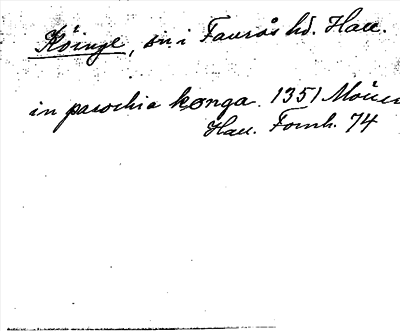 Köinge, sn. i Faurås hd. Hall.
in parochia kønga. 1351 Möller
Hall. Fornh. 74